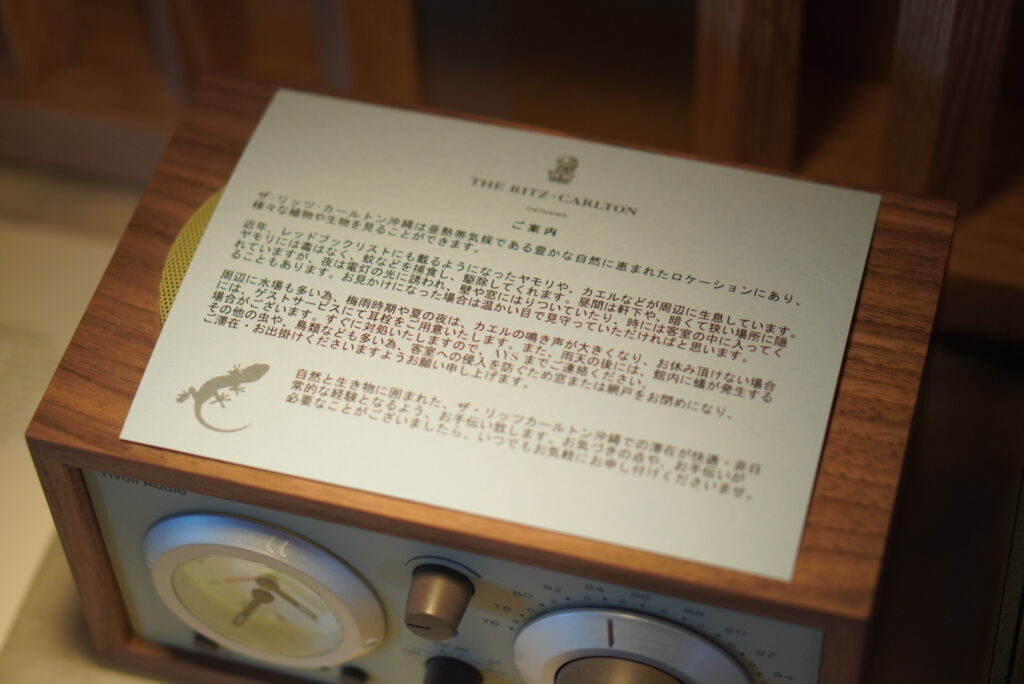 THE RITZ-CARLTON
OKINAWA
ご案内
ザ・リッツ・カールトン沖縄は亜熱帯気候である豊かな自然に恵まれたロケーションにあり、
様々な植物や生物を見ることができます。
近年、レッドブックリストにも載るようになったヤモリや、カエルなどが周辺に生息しています。
ヤモリには毒はなく、蚊などを捕食し、駆除してくれます。昼間は軒下や、暗くて狭い場所に隠
れていますが、夜は電灯の光に誘われ、壁や窓にはりついていたり、時には客室の中に入ってく
ることもあります。お見かけになった場合は温かい目で見守っていただければと思います。
周辺に水場も多い為、梅雨時期や夏の夜は、カエルの鳴き声が大きくなり、お休み頂けない場合
には、ゲストサービスにて耳栓をご用意いたします。また、雨天の後には、館内に蟻が発生する
場合がございます。すぐに対処いたしますので、AYSまでご連絡ください。
その他の虫や、鳥類なども多い為、客室への侵入を防ぐため窓または網戸をお閉めになり、
ご滞在・お出掛けくださいますようお願い申し上げます。
自然と生き物に囲まれた、ザ・リッツカールトン沖縄での滞在が快適・非日
常的な経験となるよう、お手伝い致します。お気づきの点や、お手伝いが
必要なことがございましたら、いつでもお気軽にお申し付けくださいませ。
Tivoli Audio
76 78 80 82 84 86 88 90 92 94